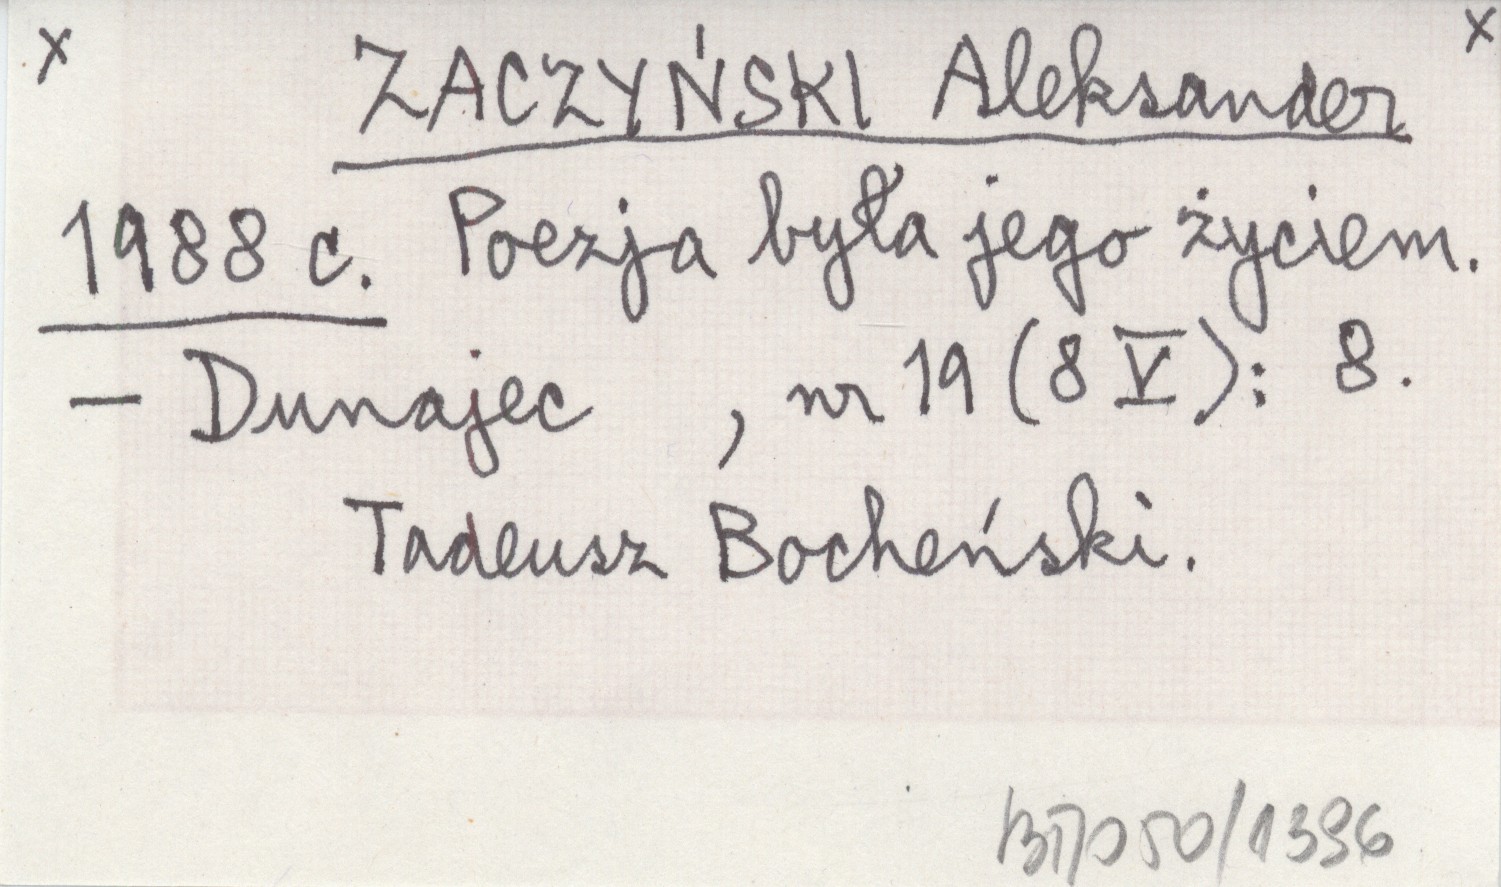 x x
ZACZYŃSKI Aleksander
1988 c. Poezja była jego życiem.
— Dunajec , nr 19 (8 V): 8.
Tadeusz Bocheński.